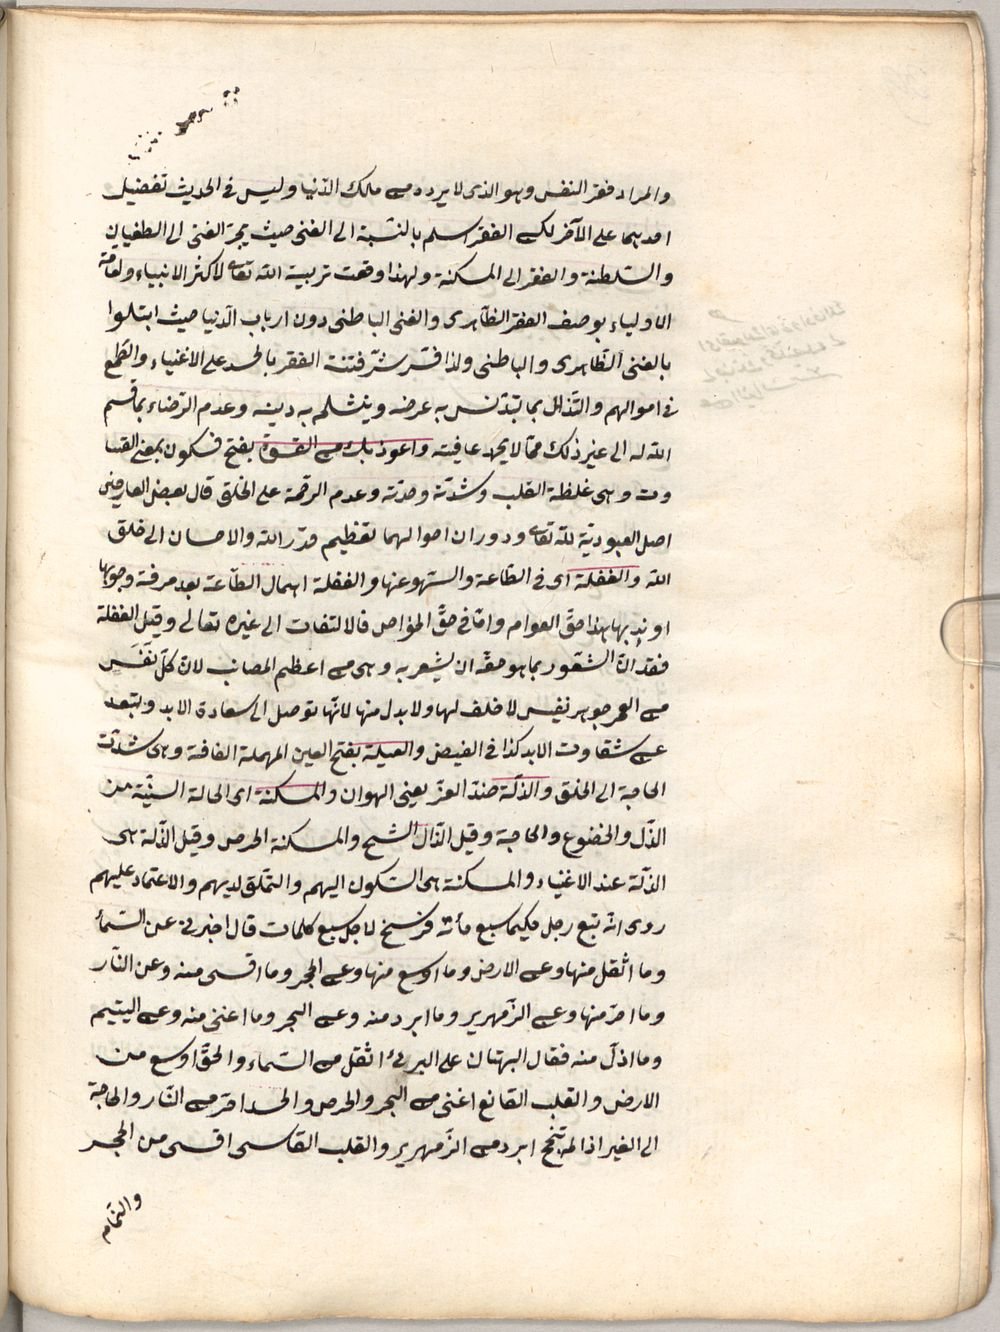 والمراد فقر النفس وهو الذى لا يرده ملك الدّنيا وليس فى الحديث تفضيل
احدهما على الآخر لكن الفقر اسلم بالنّسبة الى الغنى حيث يجرّ الغنى الى الطغيان
والسّلطنة والفقر الى المسكنة ولهذا وقعت تربية اللّه تعالى لاكثر الانبياء ولعامّة
الاولياء بوصف الفقر الظّاهرى والغنى الباطنى دون ارباب الدّنيا حيث ابتلوا
بالغنى الظّاهرى والباطنى ولذا فسّر شرّ فتنة الفقر بالحسد على الاغنياء والطّمع
فى اموالهم والتّذلل بما يتدنّس به عرضه وينثلم به دينه وعدم الرّضاء بما قسم
اللّه له الى غير ذلك ممّا لا يحمد عاقبته واعوذ بك من القسوة بفتح فسكون بمعنى القسا
وت وهى غلظة القلب وشدّته وحدّته وعدم الرّحمة على الخلق قال بعض العارفين
اصل العبودية للّه تعالى ودوران احوالهما تعظيم قدر اللّه والاحسان الى خلق
اللّه والغفلة اى فى الطّاعة والسّهو عنها والغفلة اهمال الطّاعة بعد معرفة وجوبها
او ندبها هذا حقّ العوام وامّا فى حقّ الخواص فالالتفات الى غيره تعالى وقيل الغفلة
فقدان الشّعور بما هو حقّه ان يشعر به وهى من اعظم المصائب لانّ كلّ نَفَسٍ
من العمر جوهر نفيس لا خلف لها ولا بدل منها لانّها توصل الى سعادة الابد وتبعد
عن شقاوت الابد كذا فى الفيض والعيلة بفتح العين المهملة الفاقة وهى شدّت
الحاجة الى الخلق والذّلّة ضدّ العزّ يعنى الهوان والمسكنة اى الحالة السّيّئة من
الذّل والخضوع والحاجة وقيل الذّال الشحّ والمسكنة الحرص وقيل الذّلة هى
الذّلة عند الاغنياء والمسكنة هى السّكون اليهم والتّملّق لديهم والاعتماد عليهم
روى انّه تبع رجل حكيما سبع مأته فرسخ لاجل سبع كلمات قال اخبرنى عن السّمأ
وما اثقل منها وعن الارض وما اوسع منها وعن الحجر وما اقسى منه وعن النّار
وما احرّ منها وعن الزّمهرير وما ابرد منه وعن البحر وما اغنى منه وعن اليتيم
وما اذلّ منه فقال البهتان على البرئ اثقل من السّماء والحقّ اوسع من
الارض والقلب القانع اغنى من البحر والحرص والحسد احرّ من النّار والحاجة
الى الغير اذا لم تنجح ابرد من الزّمهرير والقلب القاسى اقسى من الحجر
والنّمام